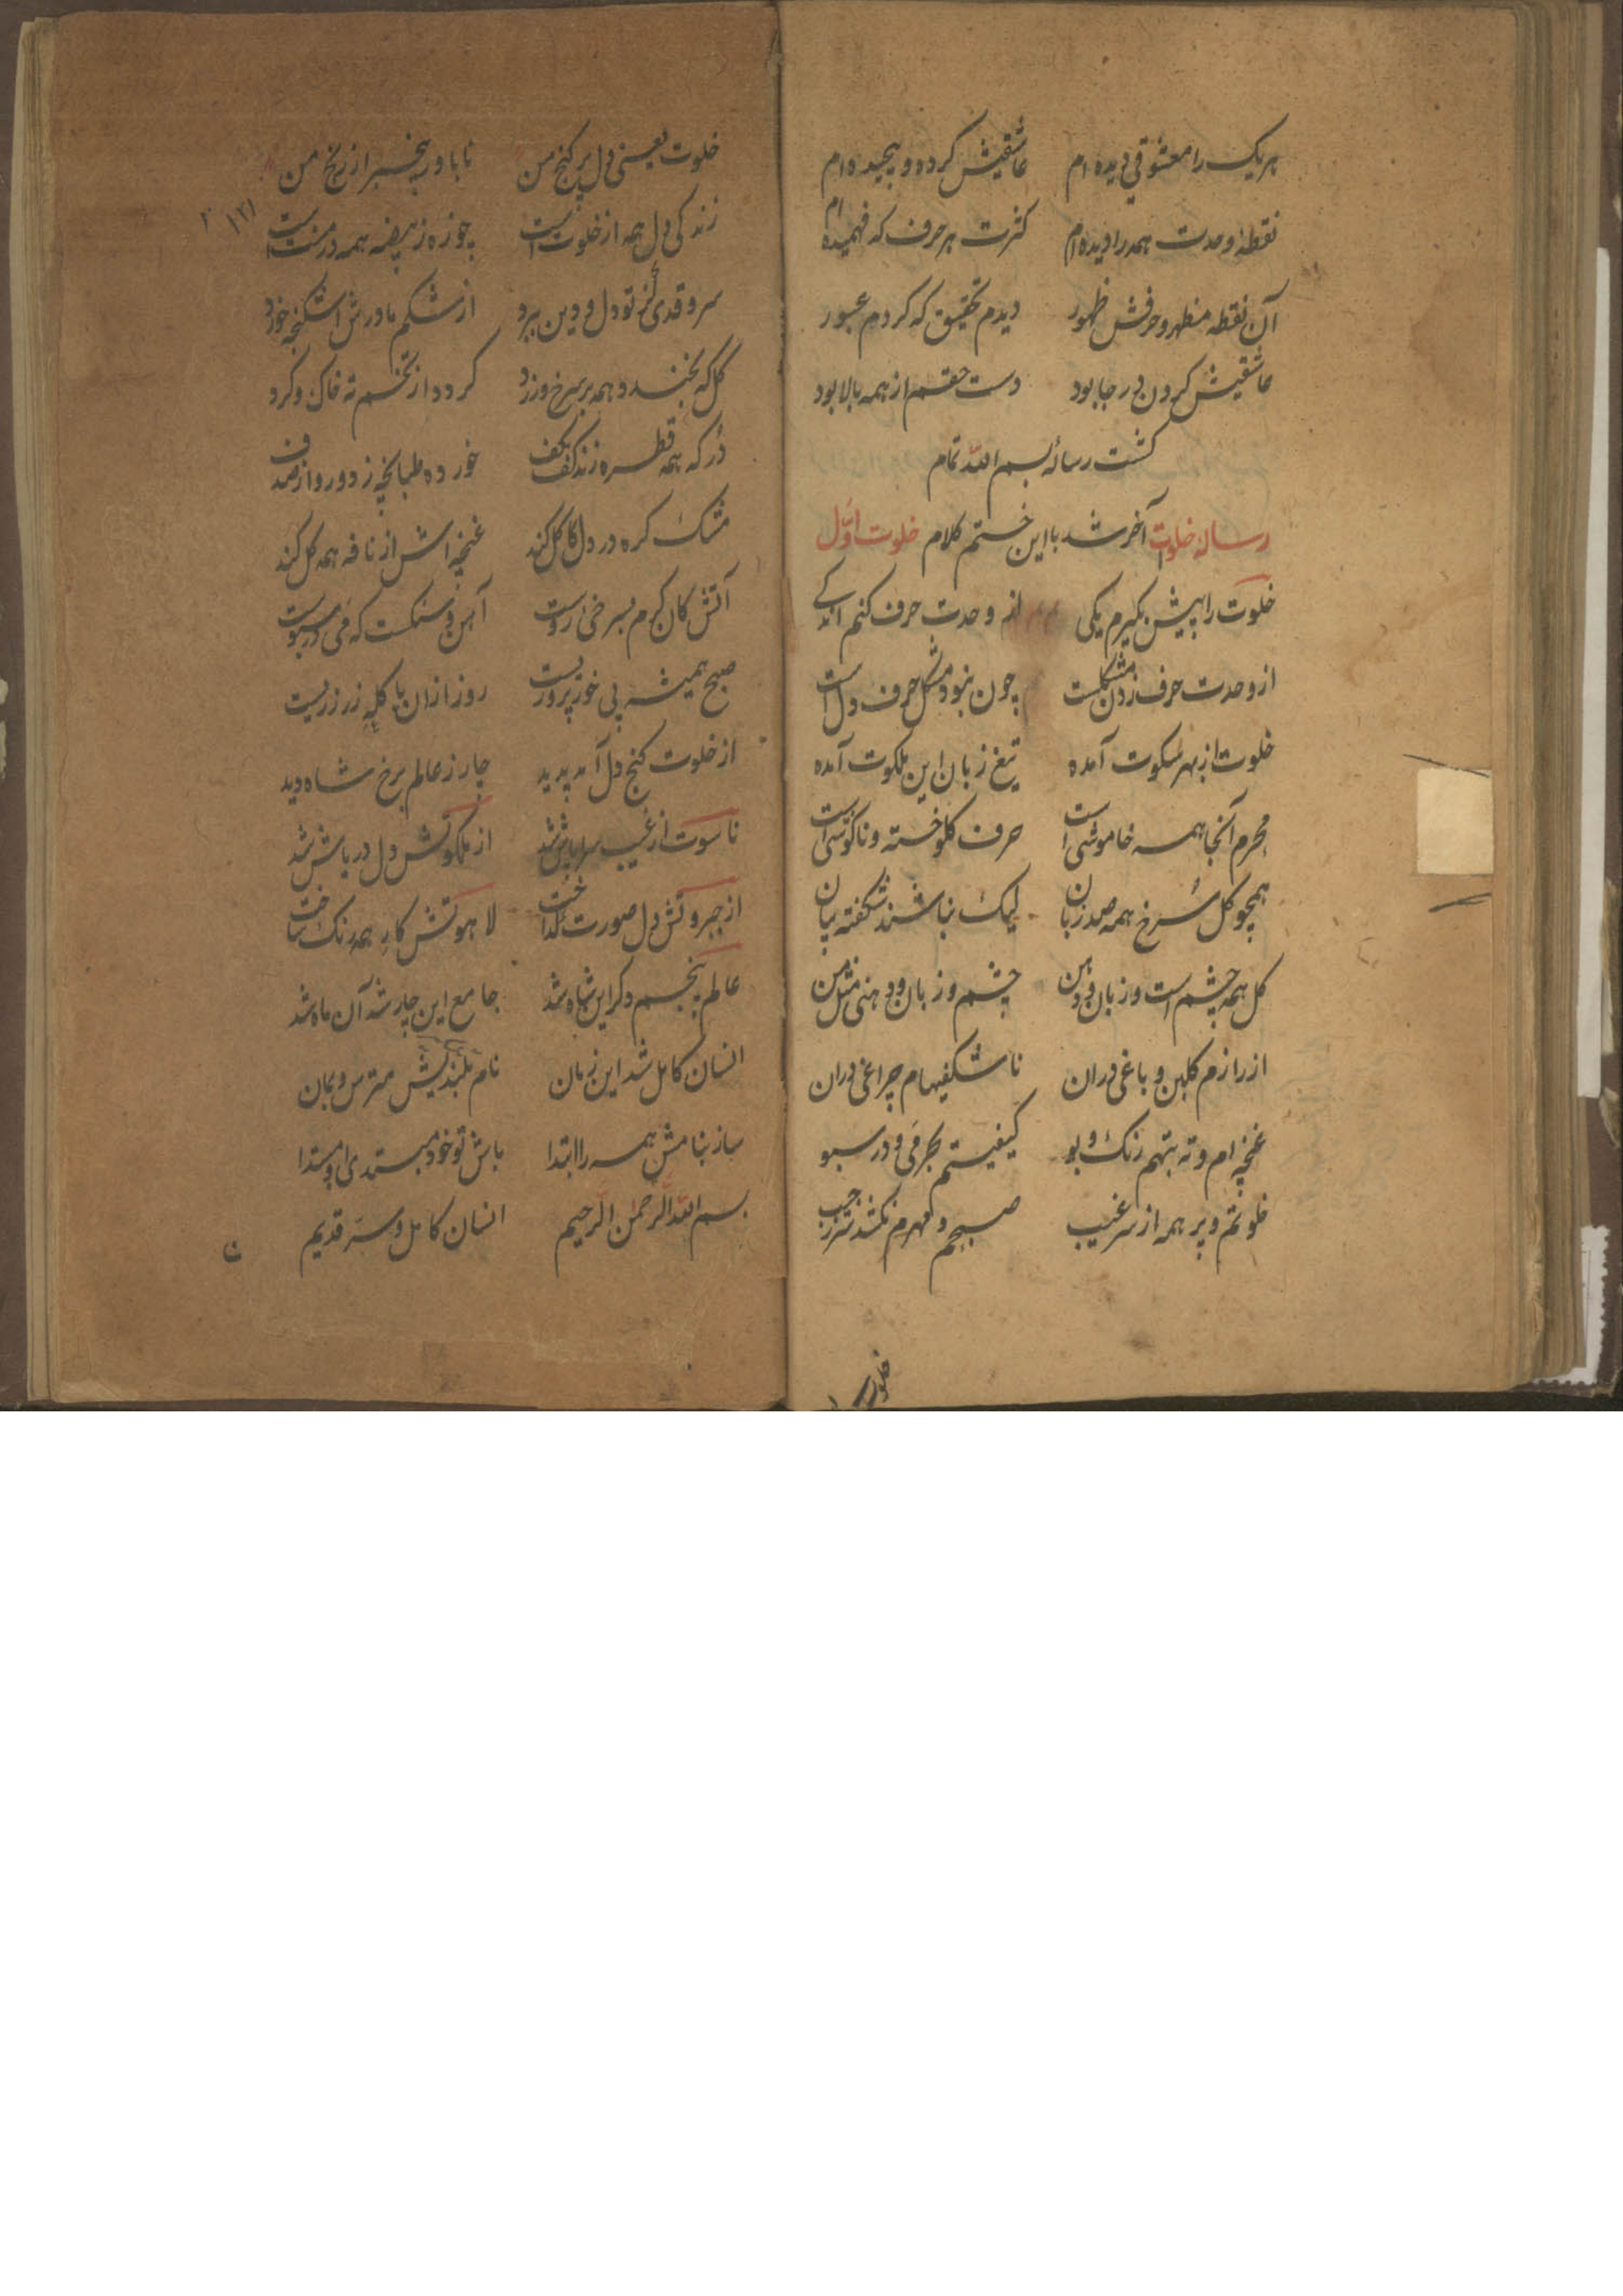 هریک را معشوقی دیده ام عاشقیش کرده و پیچیده ام
نقطهٔ وحدت همه را دیده ام کثرت هر حرف که فهمیده ام
آن نقطه مظهر و حرفش ظهور دیدم تحقیق که کردم عبور
عاشقیش کردن در جا بود دست حقم از همه بالا بود
کشت رسالهٔ بسم الله تمام
رساله خلوت آخر شد با این ختم کلام خلوت اوّل
خلوت را پیش بکیرم یکی از وحدت حرف کنم اندکی
از وحدت حرف زدن مشکلست چون نبود مشکل حرف دل است
خلوت از بهر سکوت آمده تیغ زبان این ملکوت آمده
محرم آنجا همه خاموشی است حرف کلو خسته و ناکوشی است
همچو کل سرخ همه صد زبان لیک نباشند شکفته بیان
کل همه چشم است و زبان و دهن چشم و زبان و دهنی مثل من
از رازم کلبن و باغی دران ناشکفیهام چراغی دران
غنچه ام و ته بتهم رنک و بو کیفیتم بحر می و در سبو
خلوتم و پر همه از سر غیب صبحم و مهرم نکشد سر ز جیب
خلوت یعنی دل پر کنج من ناباور بیخبر از رنج من
زندکی دل همه از خلوت است جوزه ز بیضه همه در منت است
سرو قدی کز تو دل و دین برد از شکم مادرش اشکنجه خورد
کل که بخندد همه بر سرخ و زرد کردد از تخم ته خاک و کرد
دُر که همه قطره زند کف بکف خورده طبانچه ز دورو از صدف
مشک کره در دل کاکل کند غنچه اش از نافه همه کل کند
آتش کان کرم بسرخی اروست آهن و سنکست که می در سبوست
صبح همیشه پی خور پرورست روز ازان با کله زر زریست
از خلوت کنج دل آمد پدید چار ز عالم برخ شاه دید
ناسوت از غیب سراپاش شد از ملکوتش دل دریاش شد
از جبروتش دل صورت کداخت لاهوتش کار همه رنک ساخت
عالم پنجم دکر این شاه شد جامع این چار شد آن ماه شد
انسان کامل شد این زمان نام بلندیش مترس و بمان
ساز بنامش همه را ابتدا باش تو خود مبتدی او مبتدا
بسم الله الرحمن الرحیم انسان کامل و سرّ قدیم